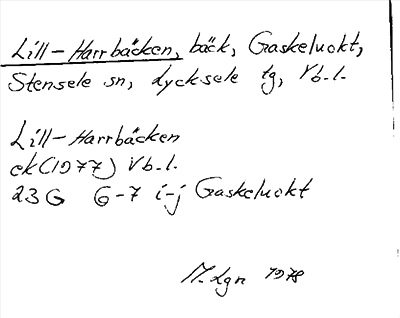 Lill-Harrbäcken, bäck, Gaskeluokt,
Stensele sn, Lycksele tg, Vb.l.
Lill-Harrbäcken
ek(1977) Vb.l.
23G 6-7 i-j Gaskeluokt
M.Lgn 1978